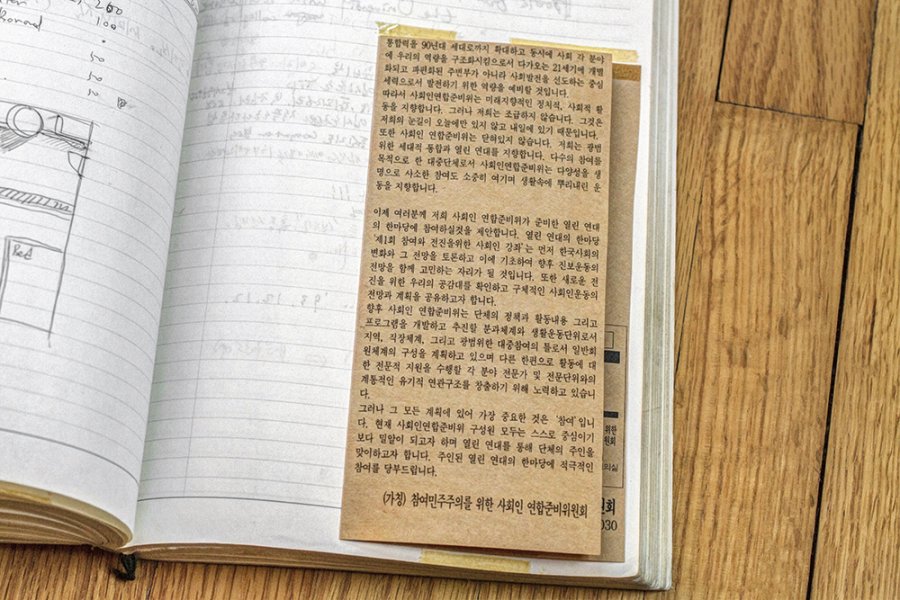 260
100
50
50
50
Bed
93. 12. 12
통합력을 90년대 세대로까지 확대하고 동시에 사회 각 분야
에 우리의 역량을 구조화시킴으로서 다가오는 21세기에 개별
화되고 파편화된 주변부가 아니라 사회발전을 선도하는 중심
세력으로서 발전하기 위한 역량을 예비할 것입니다.
따라서 사회인연합준비위는 미래지향적인 정치적, 사회적 활
동을 지향합니다. 그러나 저희는 조급하지 않습니다. 그것은
저희의 눈길이 오늘에만 있지 않고 내일에 있기 때문입니다.
또한 사회인 연합준비위는 닫혀있지 않습니다. 저희는 광범
위한 세대적 통합과 열린 연대를 지향합니다. 다수의 참여를
목적으로 한 대중단체로서 사회인연합준비위는 다양성을 생
명으로 사소한 참여도 소중히 여기며 생활속에 뿌리내린 운
동을 지향합니다.
이제 여러분께 저희 사회인 연합준비위가 준비한 열린 연대
의 한마당에 참여하실것을 제안합니다. 열린 연대의 한마당
'제1회 참여와 전진을위한 사회인 강좌'는 먼저 한국사회의
변화와 그 전망을 토론하고 이에 기초하여 향후 진보운동의
전망을 함께 고민하는 자리가 될 것입니다. 또한 새로운 전
진을 위한 우리의 공감대를 확인하고 구체적인 사회인운동의
전망과 계획을 공유하고자 합니다.
향후 사회인 연합준비위는 단체의 정책과 활동내용 그리고
프로그램을 개발하고 추진할 분과체계와 생활운동단위로서
지역, 직장체계, 그리고 광범위한 대중참여의 틀로서 일반회
원체계의 구성을 계획하고 있으며 다른 한편으로 활동에 대
한 전문적 지원을 수행할 각 분야 전문가 및 전문단위와의
계통적인 유기적 연관구조를 창출하기 위해 노력하고 있습니
다.
그러나 그 모든 계획에 있어 가장 중요한 것은 '참여'입니
다. 현재 사회인연합준비위 구성원 모두는 스스로 중심이기
보다 밀알이 되고자 하며 열린 연대를 통해 단체의 주인을
맞이하고자 합니다. 주인된 열린 연대의 한마당에 적극적인
참여를 당부드립니다.
(가칭) 참여민주주의를 위한 사회인 연합준비위원회
위한
원회
의실
원회
030